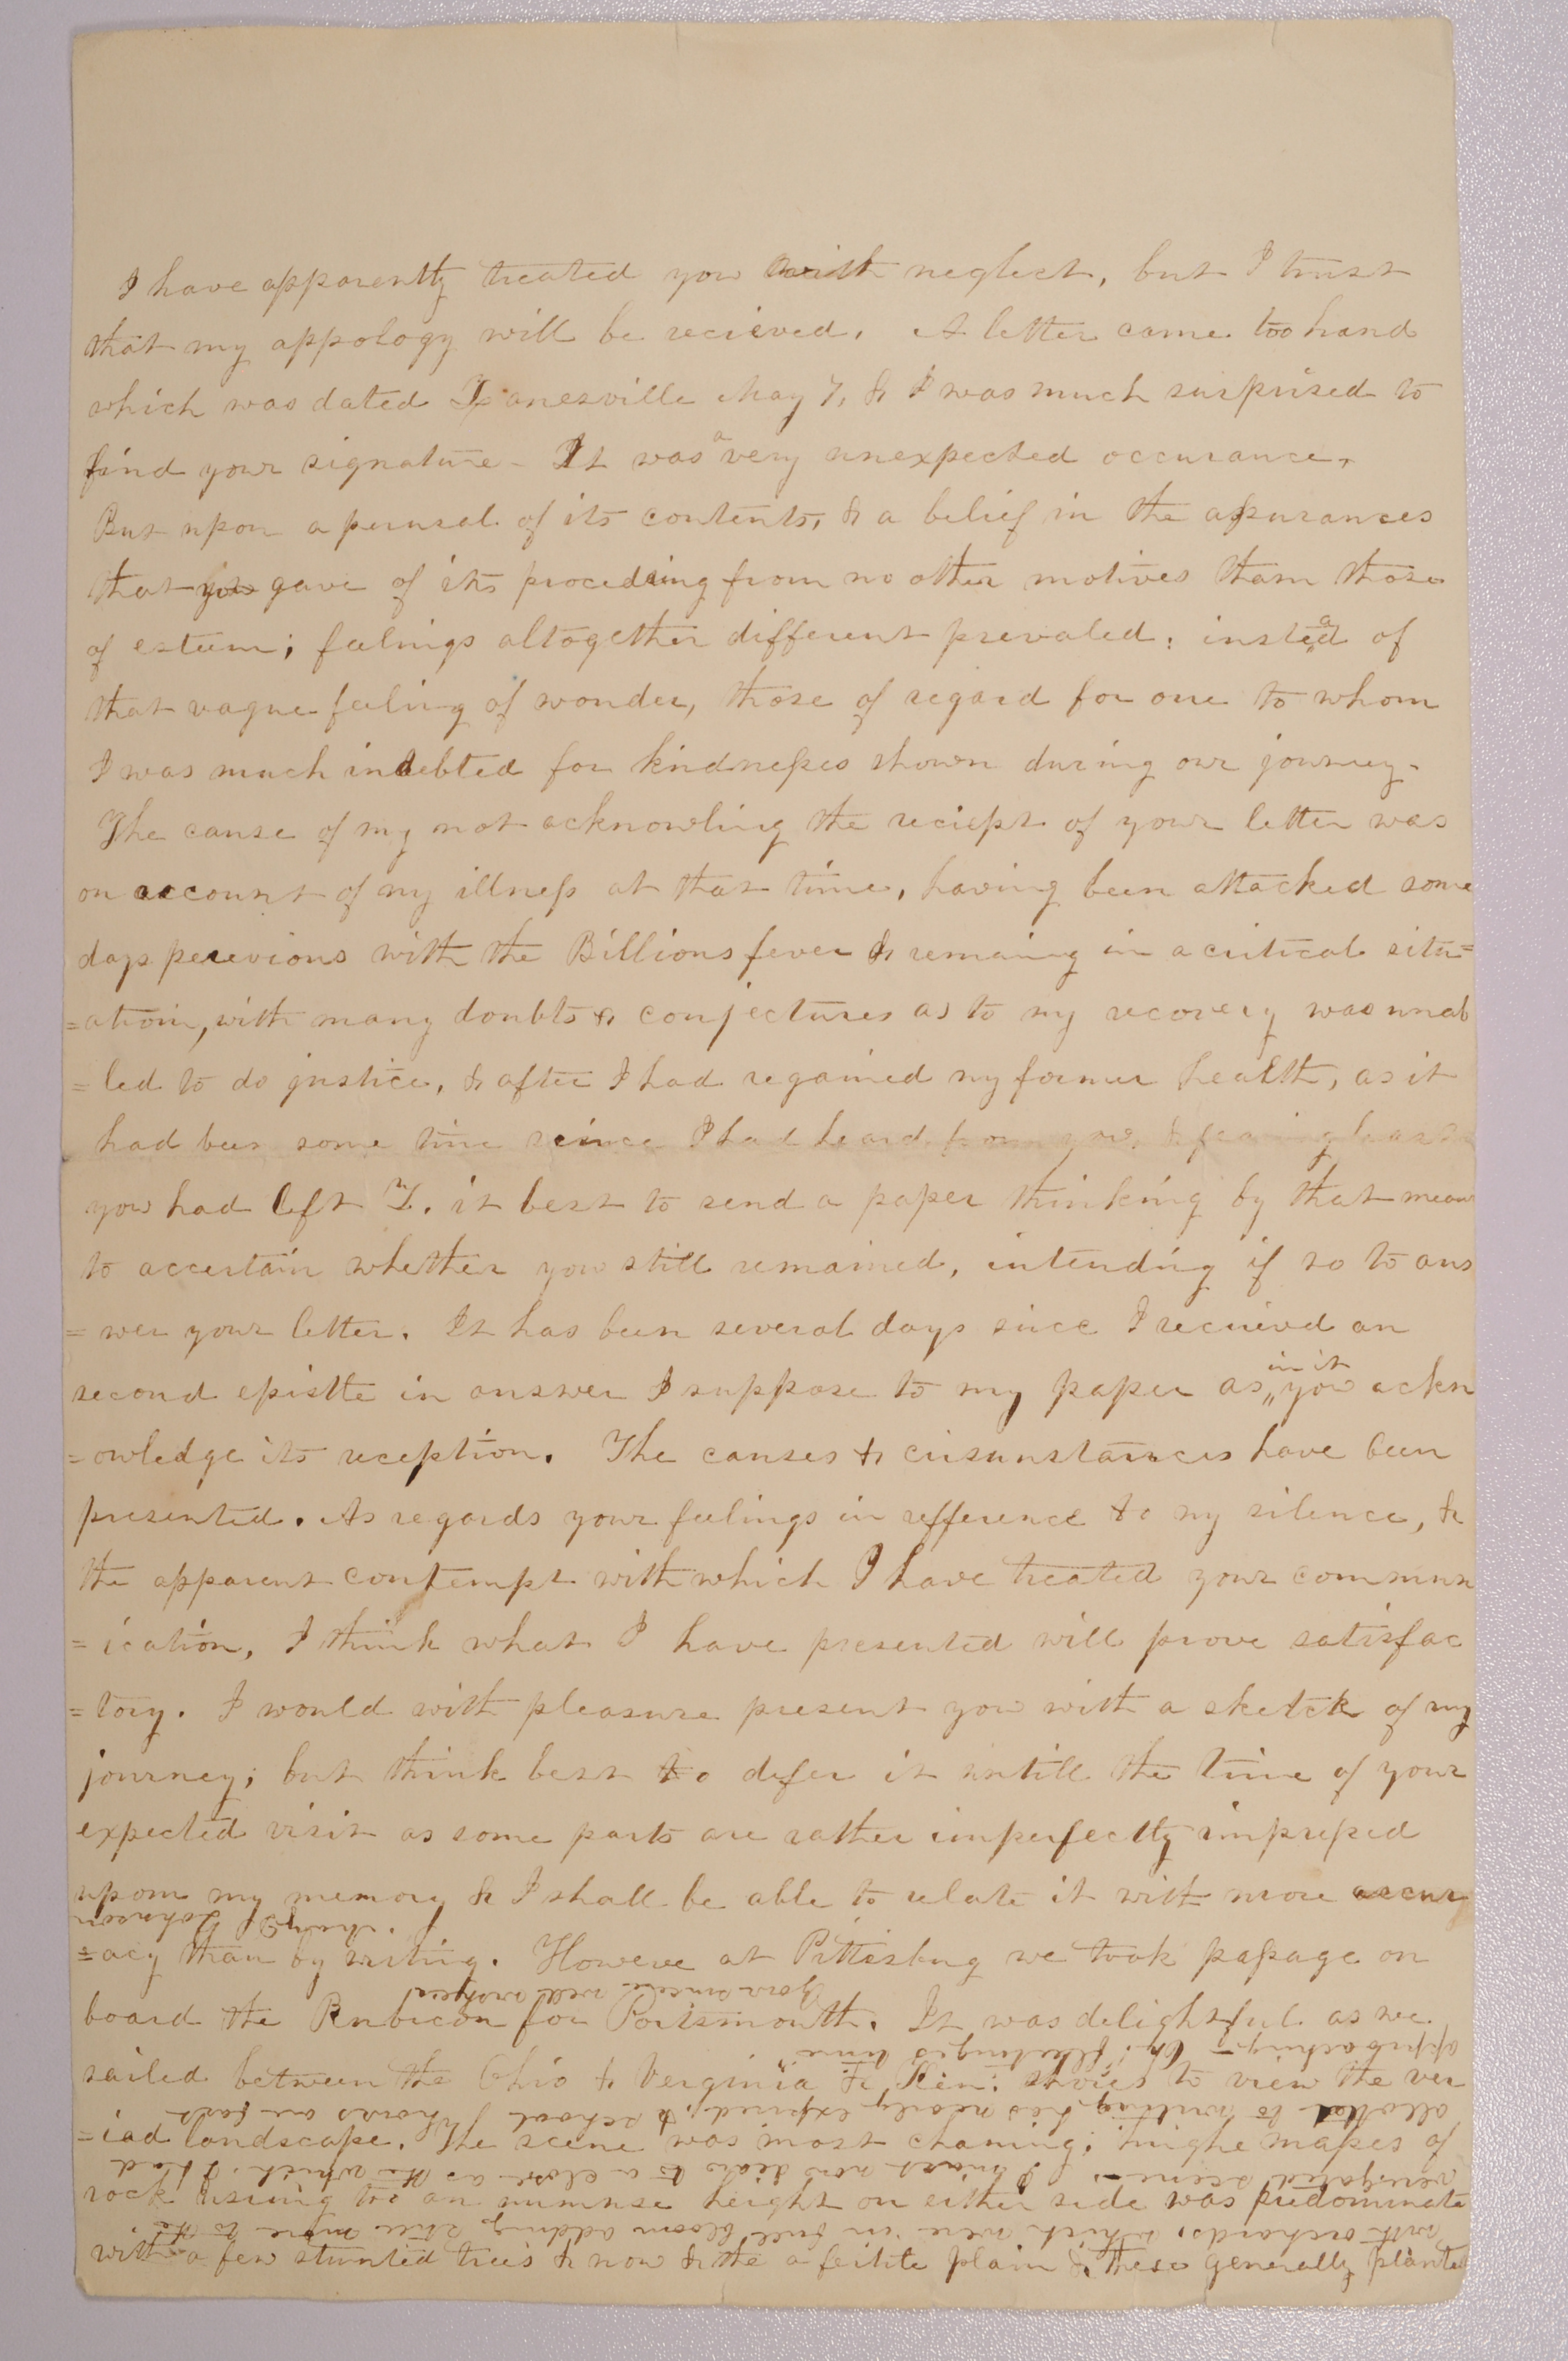 I have apparently treated you with neglect, but I trust
that my appology will be recieved. A letter came too hand
which was dated Zanesville May 7, & I was much surprised to
find your signature - It was a very unexpected occurance,
But upon a perusal of its contents, & a belief in the assurances
that you gave of its proceding from no other motives tham those
of esteem; feelings altogether different prevaled: instead of
that vague feeling of wonder, those of regard for one to whom
I was much indebted for kindnesses shown during our journey.
The cause of my not acknowling the reciept of your letter was
on account of my illness at that time, having been attacked some
days perevious with the Billious fever & remaing in a critical situ=
=ation, with many doubts & conjectures as to my recovery was unab
=led to do justice, & after I had regained my former health, as it
had been some time scince I had heard from you, & fearing least
you had left Z. it best to send a paper thinking by that mean
to accertain whether you still remained, intending if so to ans
=wer your letter. It has been several days since I recieved an
second epistle in answer I suppose to my paper as in it you ackn
=owledge its reception. The causes & circumstances have been
presented. As regards your feelings in refference to my silence, &
the apparent contempt with which I have treated your commun
=ication, I think what I have presented will prove satisfac
=tory. I would with pleasure present you with a sketck of my
journey; but think best to defer it untill the time of your
expected visit as some parts are rather imperfectly impressed
upom my memory & I shall be able to relate it with more accur
=acy than by writing. Howeve at Pittisburg we took passage on
board the Rubicon for Portsmouth. It was delightful as we
sailed between the Ohio & Verginia & Ken: shores to view the ver
=iad landscape. The scene was most chaming; hughe masses of
rock rising too an immnse height on either side was predominate
with a few stunted trees & now & the a feitile plain & these generally plante
with orchards, which were in full bloom adding still more to the
verigated scene. I must now draw to a close as the which I had
allotted to writing has nearly expired, & school hours are fast
approaching - Oh! fleeting is time"
Your sincere well wisher
Mary Johnson